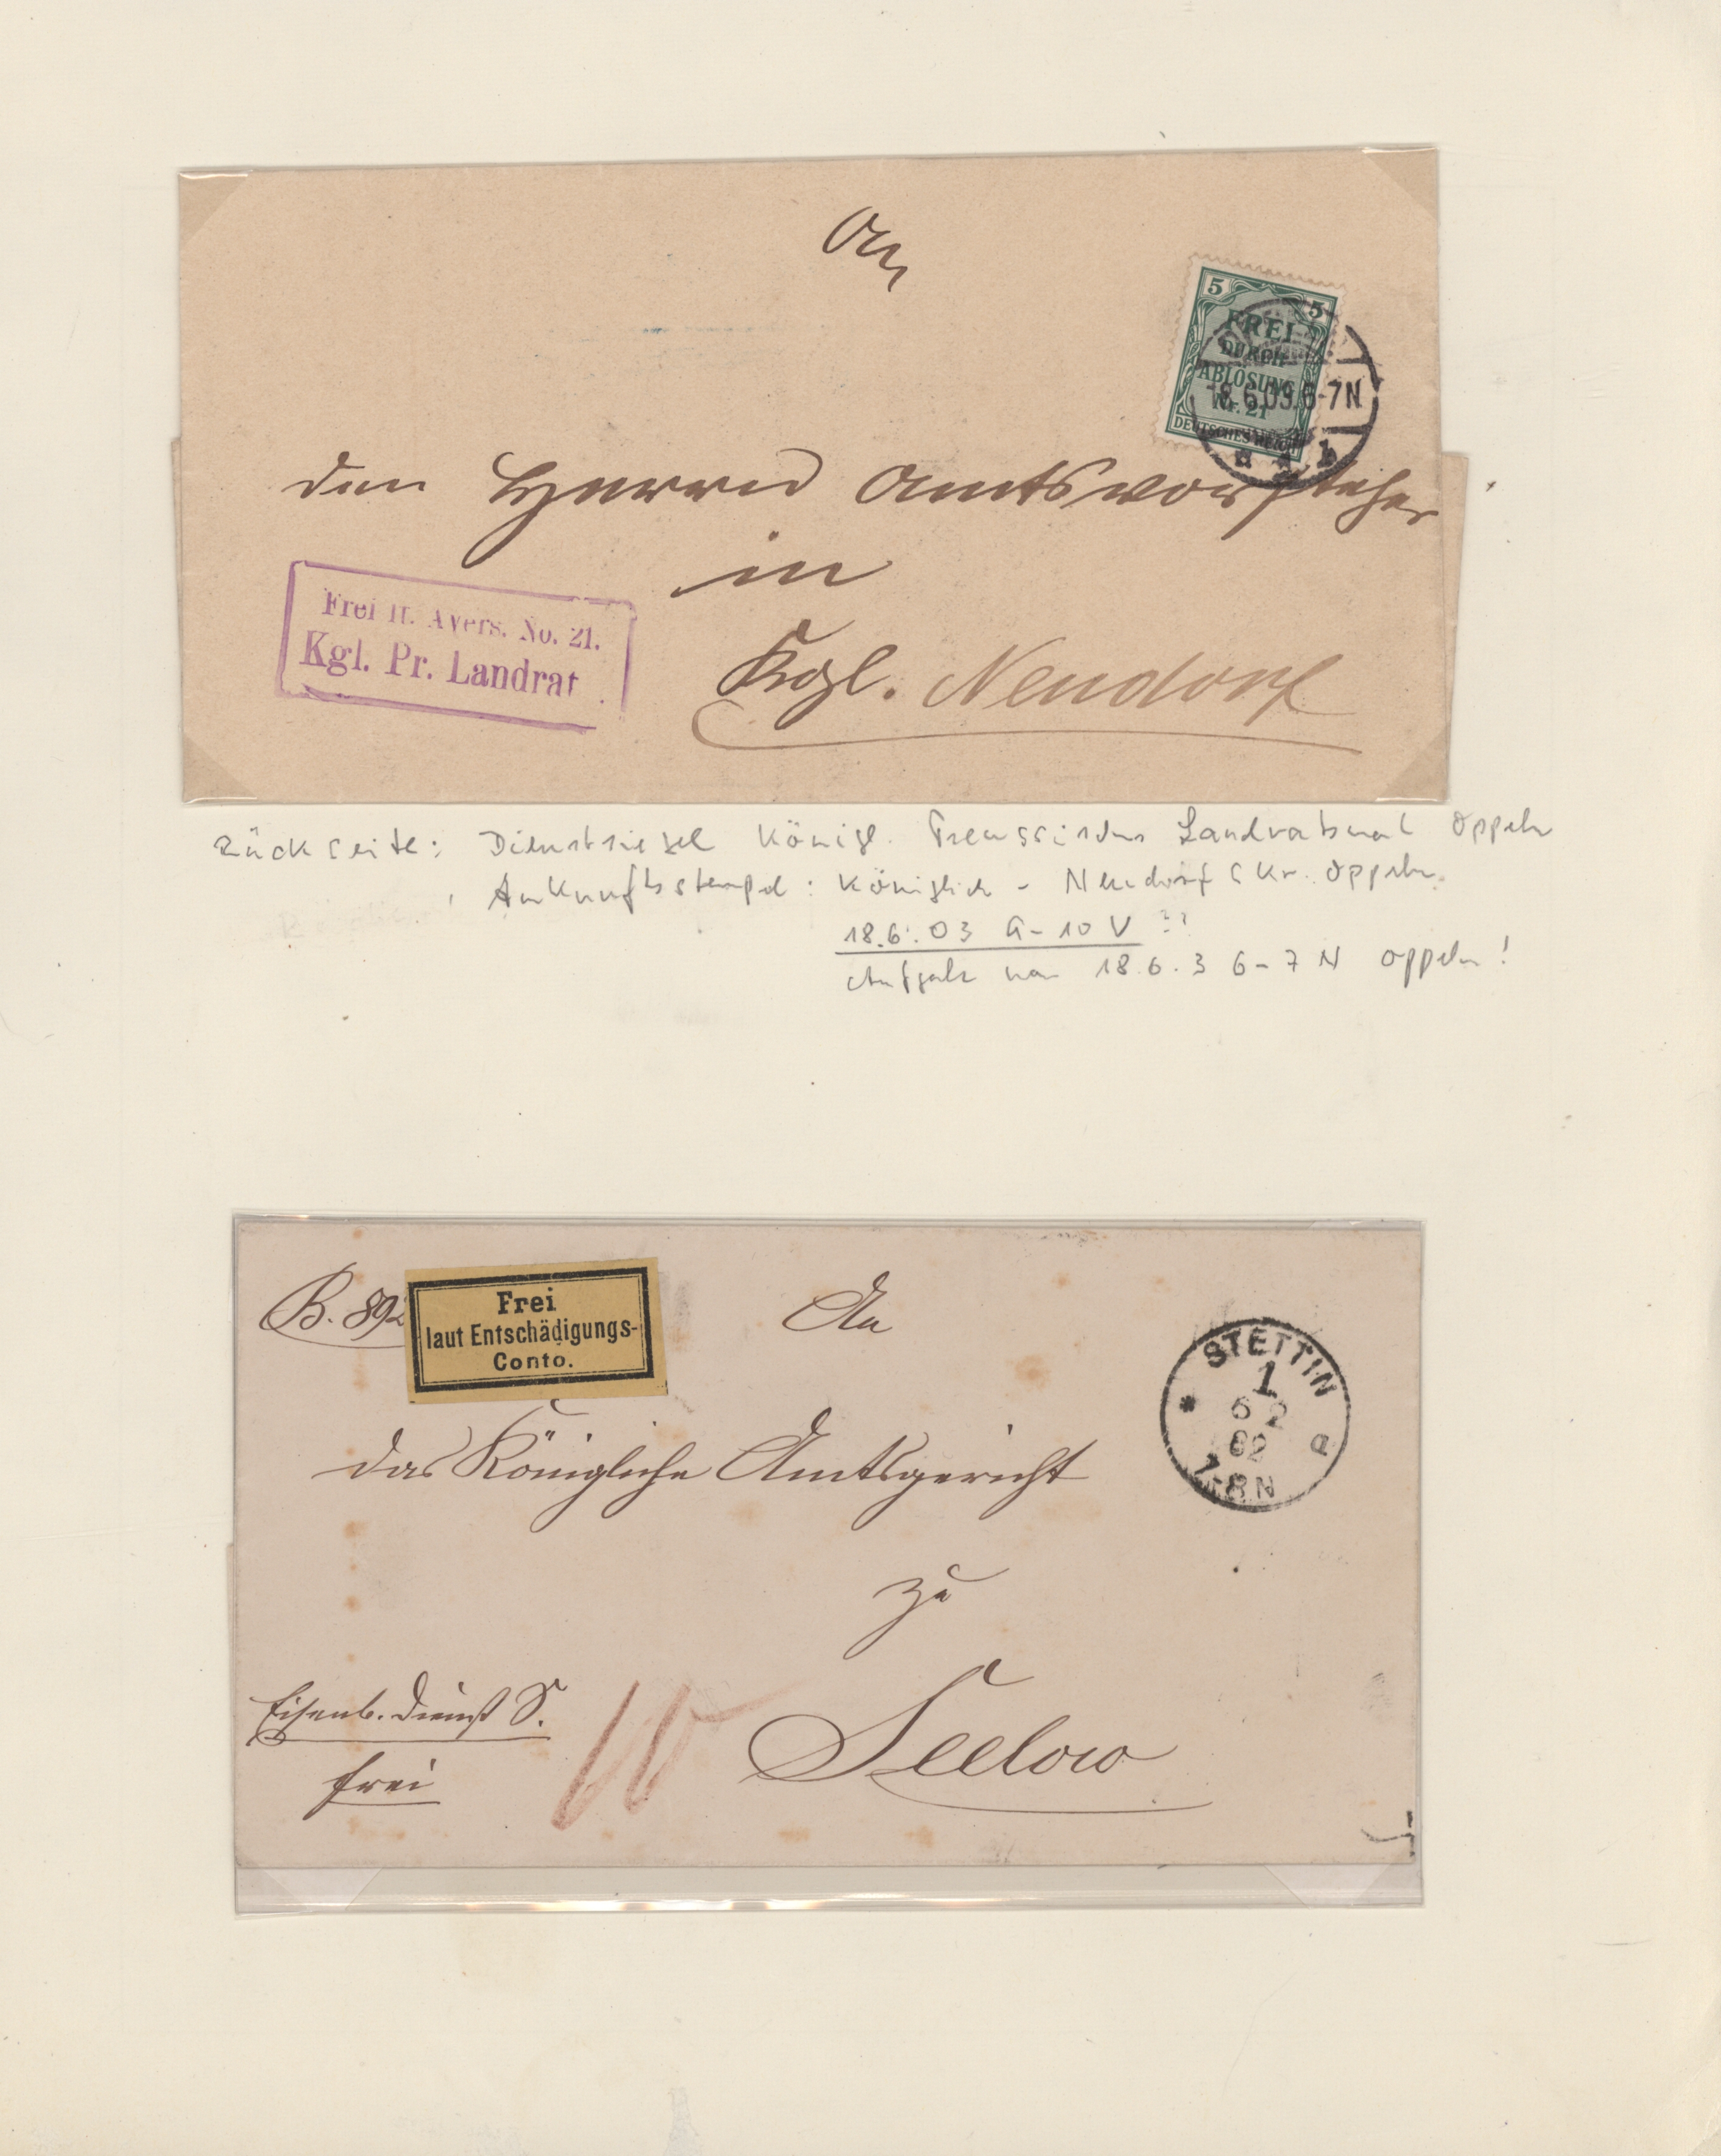 An
5 5
FREI
DURCH
ABLÖSUNG
Nr. 21
DEUTSCHES REICH
8.6.03.6-7N
den Herrn Amtsvorsteher
in
Frei lt. Avers. No. 21.
Kgl. Pr. Landrat
Kgl. Neudorf
Rückseite: Dienstsiegel Königl. Preussisches Landratsamt Oppeln
Ankunftsstempel: Königlich - Neudorf Kr. Oppeln
18.6.03 9-10 V ??
Aufgabe war 18.6.3 6-7 N Oppeln!
B. 892
Frei
laut Entschädigungs-
Conto.
An
STETTIN
1
6 2
82
7-8N
a
das Königliche Amtsgericht
zu
Eisenb. Dienst S.
frei
10
Seelow